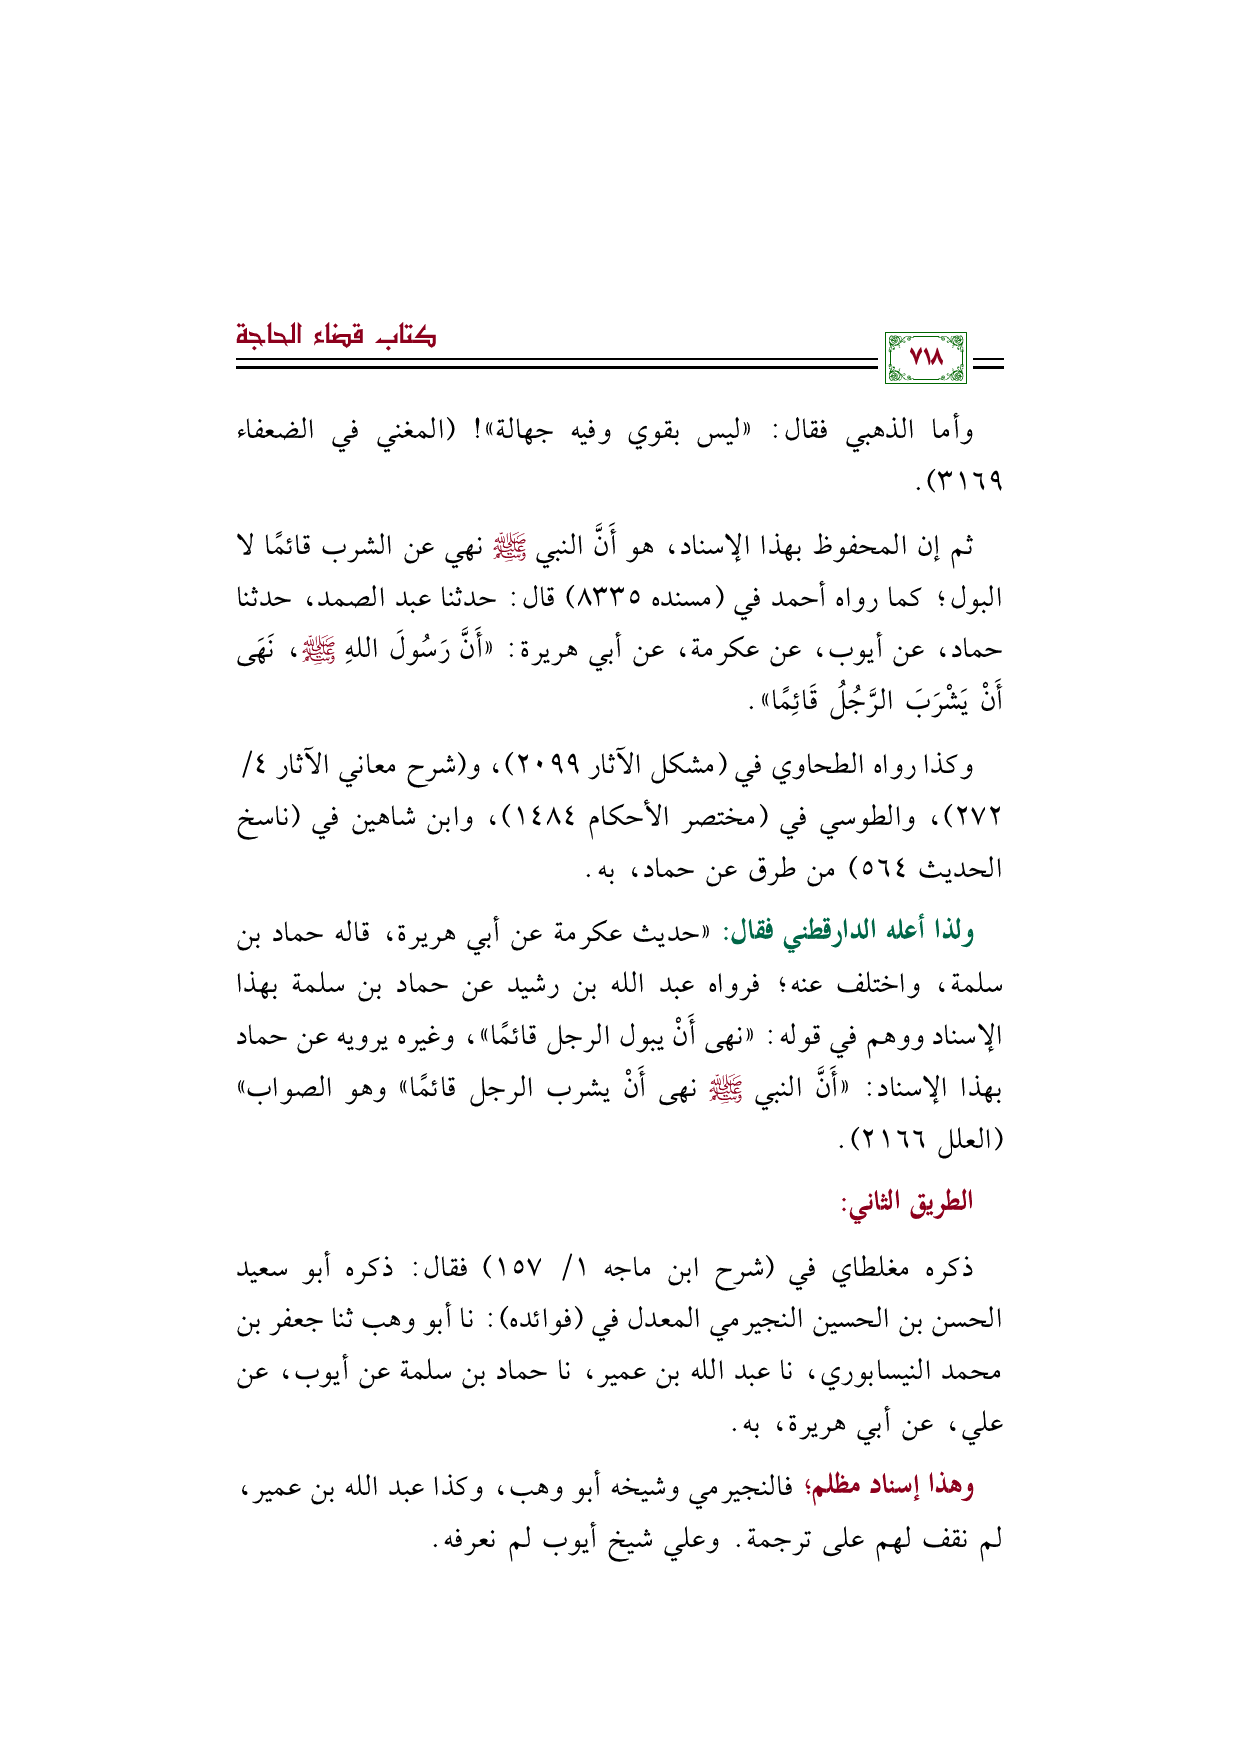 كتاب قضاء الحاجة
٧١٨
وأما الذهبي فقال: «ليس بقوي وفيه جهالة»! (المغني في الضعفاء
٣١٦٩).
ثم إن المحفوظ بهذا الإسناد، هو أَنَّ النبي ﷺ نهي عن الشرب قائمًا لا
البول؛ كما رواه أحمد في (مسنده ٨٣٣٥) قال: حدثنا عبد الصمد، حدثنا
حماد، عن أيوب، عن عكرمة، عن أبي هريرة: «أَنَّ رَسُولَ اللهِ ﷺ، نَهَى
أَنْ يَشْرَبَ الرَّجُلُ قَائِمًا».
وكذا رواه الطحاوي في (مشكل الآثار ٢٠٩٩)، و(شرح معاني الآثار ٤/
٢٧٢)، والطوسي في (مختصر الأحكام ١٤٨٤)، وابن شاهين في (ناسخ
الحديث ٥٦٤) من طرق عن حماد، به.
ولذا أعله الدارقطني فقال: «حديث عكرمة عن أبي هريرة، قاله حماد بن
سلمة، واختلف عنه؛ فرواه عبد الله بن رشيد عن حماد بن سلمة بهذا
الإسناد ووهم في قوله: «نهى أَنْ يبول الرجل قائمًا»، وغيره يرويه عن حماد
بهذا الإسناد: «أَنَّ النبي ﷺ نهى أَنْ يشرب الرجل قائمًا» وهو الصواب»
(العلل ٢١٦٦).
الطريق الثاني:
ذكره مغلطاي في (شرح ابن ماجه ١/ ١٥٧) فقال: ذكره أبو سعيد
الحسن بن الحسين النجيرمي المعدل في (فوائده): نا أبو وهب ثنا جعفر بن
محمد النيسابوري، نا عبد الله بن عمير، نا حماد بن سلمة عن أيوب، عن
علي، عن أبي هريرة، به.
وهذا إسناد مظلم؛ فالنجيرمي وشيخه أبو وهب، وكذا عبد الله بن عمير،
لم نقف لهم على ترجمة. وعلي شيخ أيوب لم نعرفه.